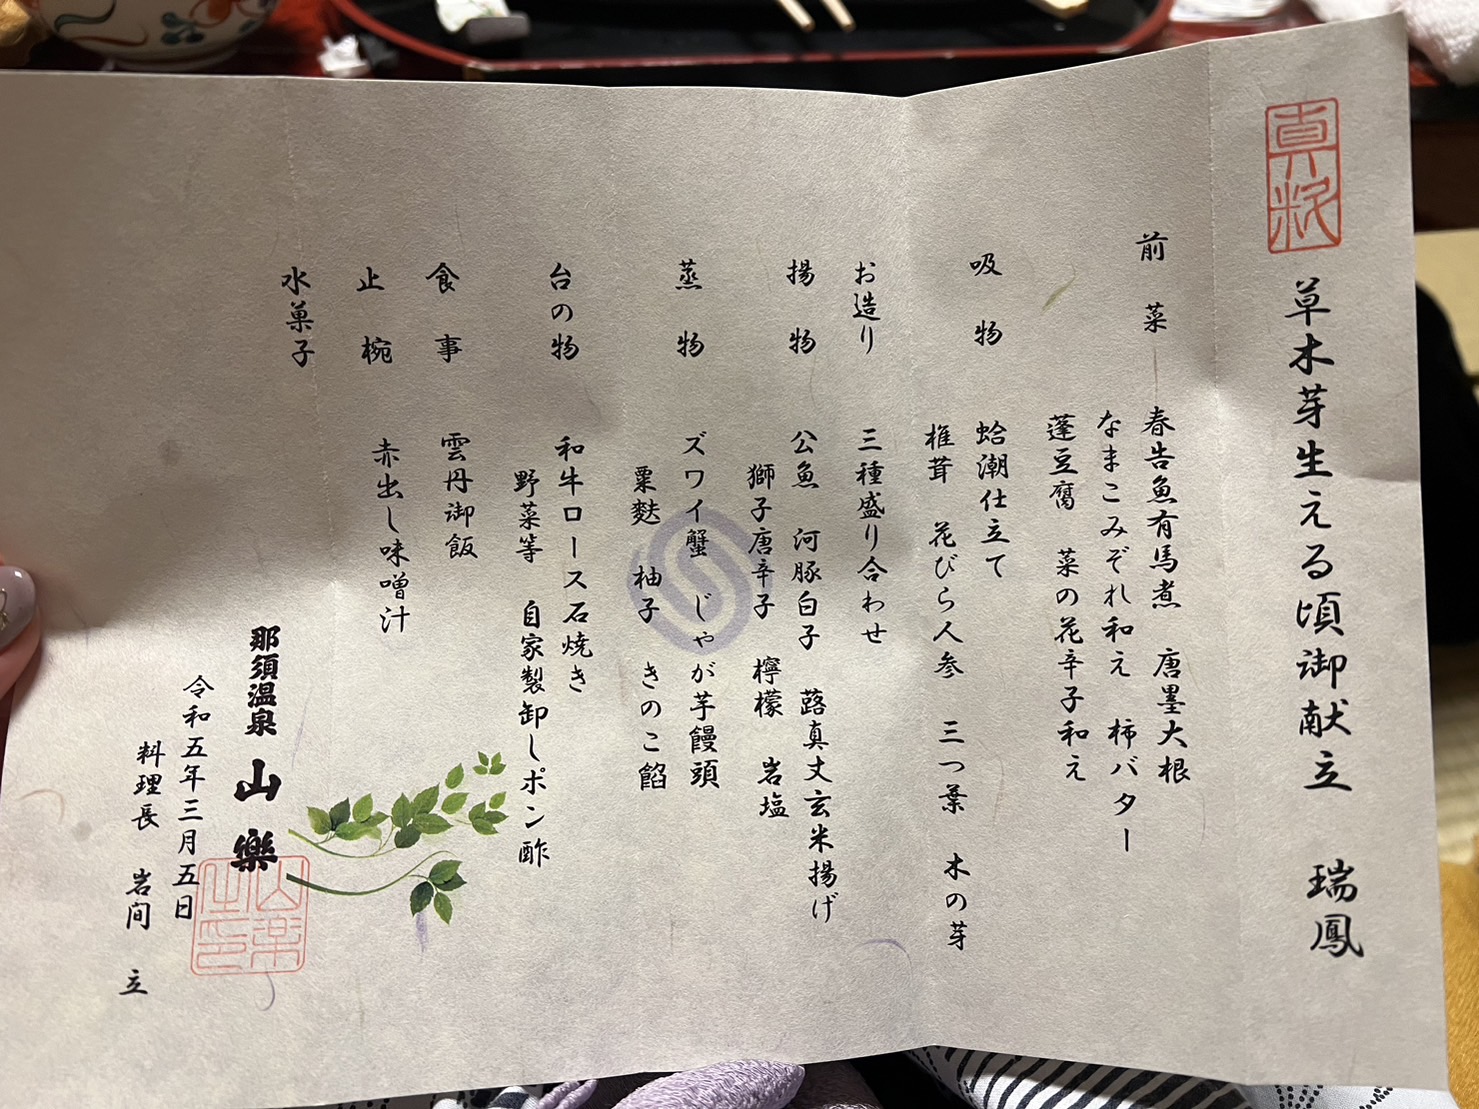 草木芽生える頃御献立 瑞鳳
前菜 春告魚有馬煮 唐墨大根
なまこみぞれ和え 柿バター
蓬豆腐 菜の花辛子和え
吸物 蛤潮仕立て
椎茸 花びら人参 三つ葉 木の芽
お造り 三種盛り合わせ
揚物 公魚 河豚白子 蕗真丈玄米揚げ
獅子唐辛子 檸檬 岩塩
蒸物 ズワイ蟹 じゃが芋饅頭
粟麩 柚子 きのこ餡
台の物 和牛ロース石焼き
野菜等 自家製卸しポン酢
食事 雲丹御飯
止椀 赤出し味噌汁
水菓子
那須温泉 山樂
令和五年三月五日
料理長 岩間 立